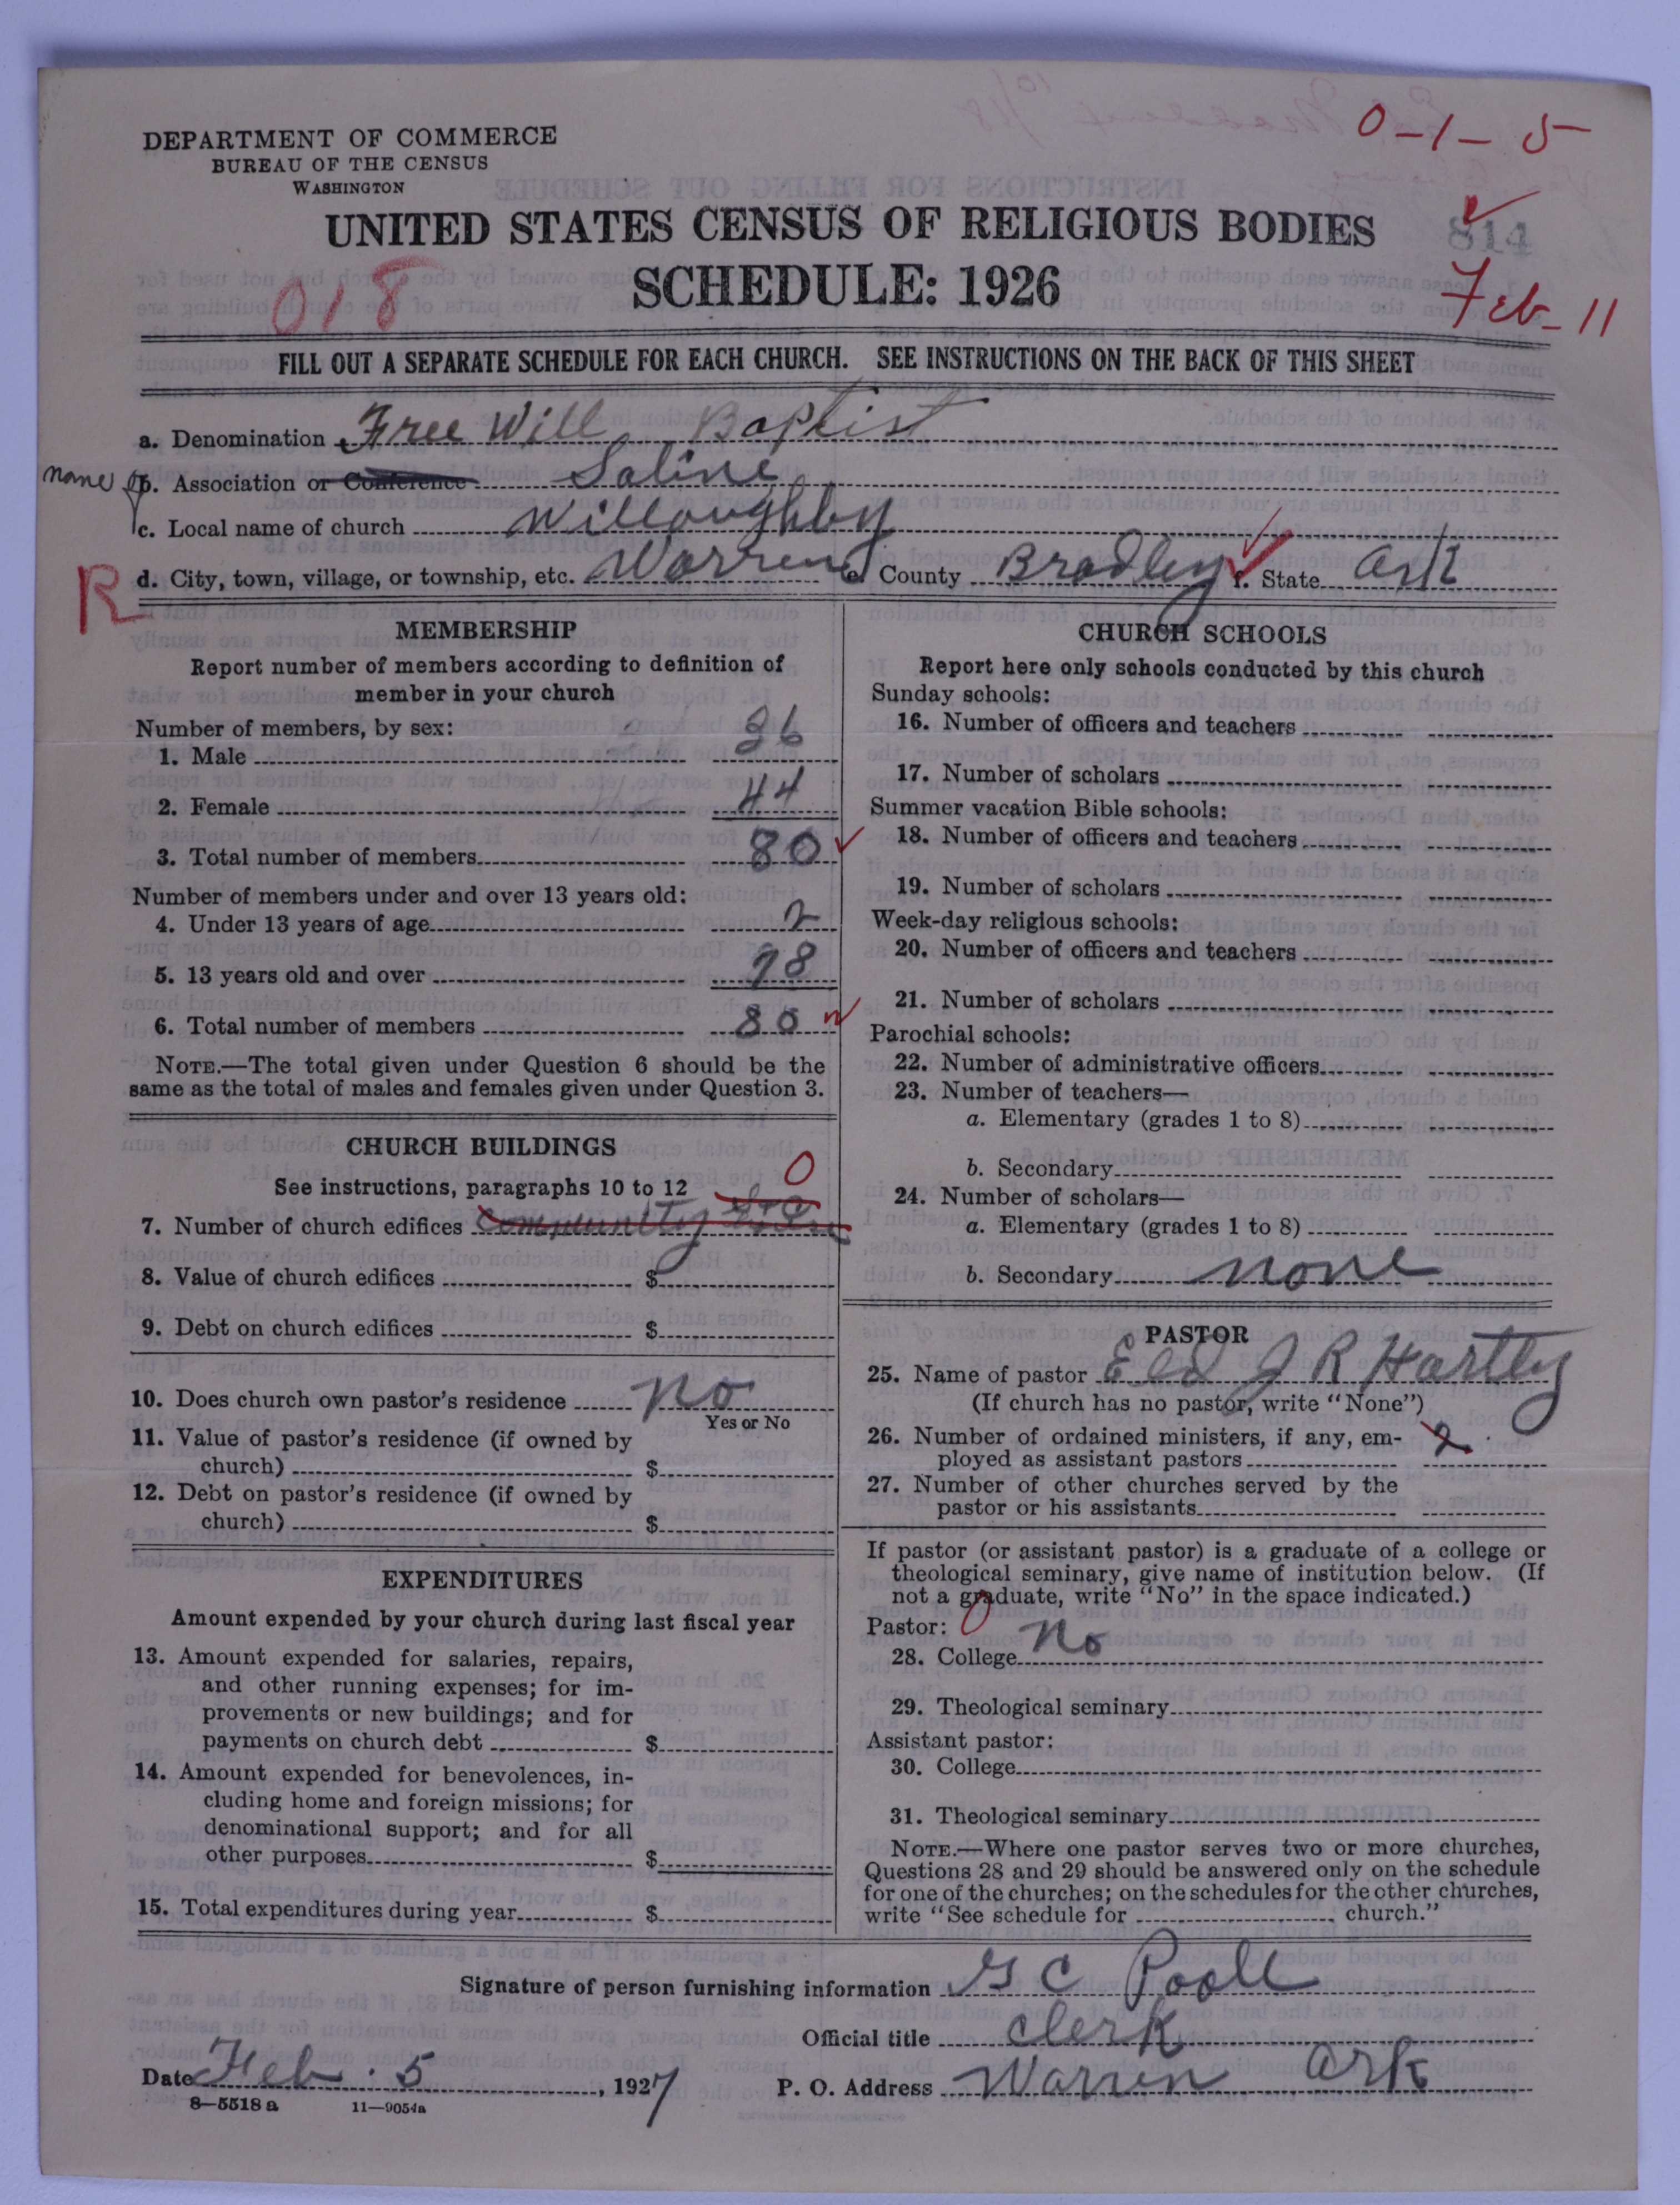 0-1-5
DEPARTMENT OF COMMERCE
BUREAU OF THE CENSUS
WASHINGTON
UNITED STATES CENSUS OF RELIGIOUS BODIES
814
SCHEDULE: 1926
018
Feb-11
FILL OUT A SEPARATE SCHEDULE FOR EACH CHURCH. SEE INSTRUCTIONS ON THE BACK OF THIS SHEET
a. Denomination Free Will Baptist
name of b. Association or Conference Saline
c. Local name of church Willoughby
R d. City, town, village, or township, etc. Warren e. County Bradley f. State Ark
MEMBERSHIP
Report number of members according to definition of
member in your church
Number of members, by sex:
1. Male 36
2. Female 44
3. Total number of members 80
Number of members under and over 13 years old:
4. Under 13 years of age 2
5. 13 years old and over 78
6. Total number of members 80
NOTE.—The total given under Question 6 should be the
same as the total of males and females given under Question 3.
CHURCH BUILDINGS
See instructions, paragraphs 10 to 12 0
7. Number of church edifices Community
8. Value of church edifices $
9. Debt on church edifices $
10. Does church own pastor's residence no
Yes or No
11. Value of pastor's residence (if owned by
church) $
12. Debt on pastor's residence (if owned by
church) $
EXPENDITURES
Amount expended by your church during last fiscal year
13. Amount expended for salaries, repairs,
and other running expenses; for im-
provements or new buildings; and for
payments on church debt $
14. Amount expended for benevolences, in-
cluding home and foreign missions; for
denominational support; and for all
other purposes $
15. Total expenditures during year $
CHURCH SCHOOLS
Report here only schools conducted by this church
Sunday schools:
16. Number of officers and teachers
17. Number of scholars
Summer vacation Bible schools:
18. Number of officers and teachers
19. Number of scholars
Week-day religious schools:
20. Number of officers and teachers
21. Number of scholars
Parochial schools:
22. Number of administrative officers
23. Number of teachers—
a. Elementary (grades 1 to 8)
b. Secondary
24. Number of scholars—
a. Elementary (grades 1 to 8)
b. Secondary none
PASTOR
25. Name of pastor Eld J R Hartley
(If church has no pastor, write "None")
26. Number of ordained ministers, if any, em-
ployed as assistant pastors 2
27. Number of other churches served by the
pastor or his assistants
If pastor (or assistant pastor) is a graduate of a college or
theological seminary, give name of institution below. (If
not a graduate, write "No" in the space indicated.)
Pastor: 0
28. College No
29. Theological seminary
Assistant pastor:
30. College
31. Theological seminary
NOTE.—Where one pastor serves two or more churches,
Questions 28 and 29 should be answered only on the schedule
for one of the churches; on the schedules for the other churches,
write "See schedule for church."
Signature of person furnishing information G C Poole
Official title Clerk
Date Feb. 5, 1927 P. O. Address Warren Ark
8—5518a 11—9054a